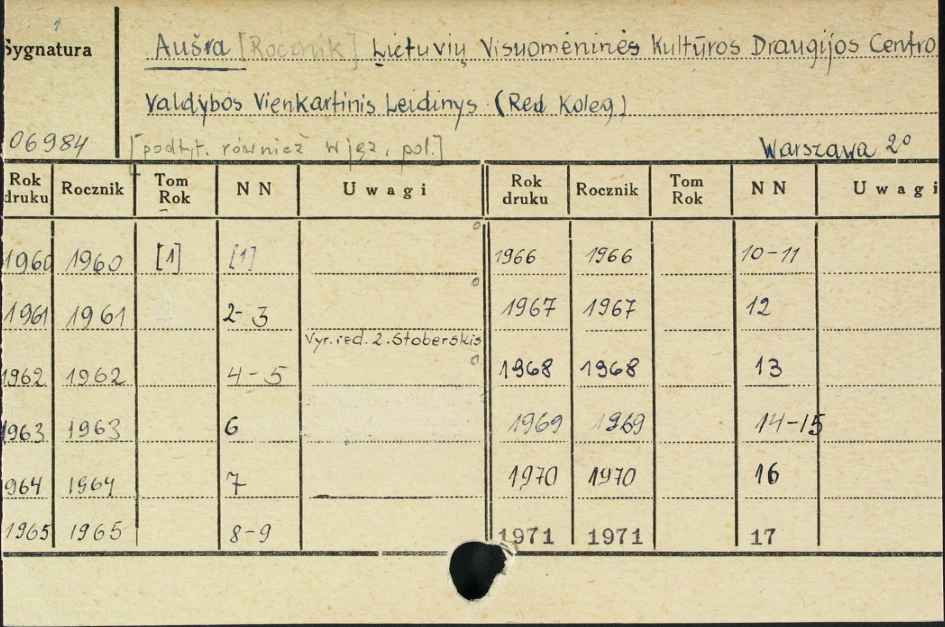 Sygnatura
Aušra [Rocznik] Lietuvių Visuomeninės Kultūros Draugijos Centro
Valdybos Vienkartinis Leidinys (Red Koleg)
06984 [podtyt. również w jęz. pol.] Warszawa 2°
Rok druku Rocznik Tom Rok NN Uwagi Rok druku Rocznik Tom Rok NN Uwagi
1960 1960 [1] [1] 1966 1966 10-11
1961 1961 2-3 1967 1967 12
Vyr. red. Z. Stoberskis
1962 1962 4-5 1968 1968 13
1963 1963 6 1969 1969 14-15
1964 1964 7 1970 1970 16
1965 1965 8-9 1971 1971 17